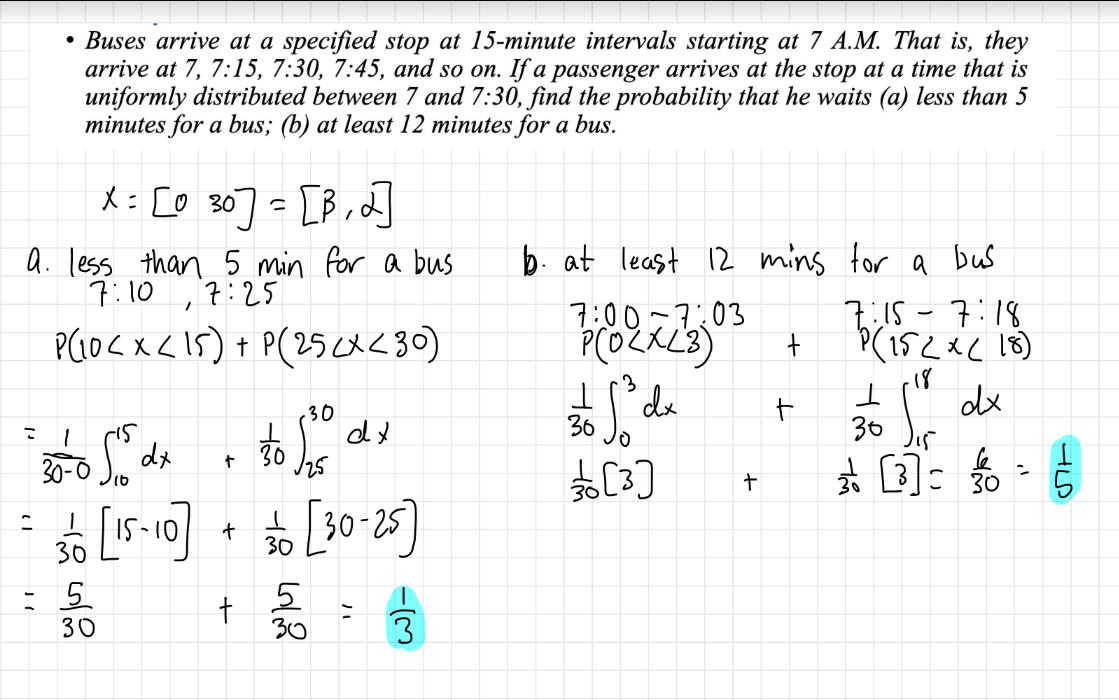 • Buses arrive at a specified stop at 15-minute intervals starting at 7 A.M. That is, they
arrive at 7, 7:15, 7:30, 7:45, and so on. If a passenger arrives at the stop at a time that is
uniformly distributed between 7 and 7:30, find the probability that he waits (a) less than 5
minutes for a bus; (b) at least 12 minutes for a bus.
X = [0 30] = [β, α]
a. less than 5 min for a bus
7:10 , 7:25
P(10 < x < 15) + P(25 < x < 30)
= 1/(30-0) ∫₁₀¹⁵ dx + 1/30 ∫₂₅³⁰ dx
= 1/30 [15-10] + 1/30 [30-25]
= 5/30 + 5/30 = 1/3
b. at least 12 mins for a bus
7:00 - 7:03 7:15 - 7:18
P(0 < x < 3) + P(15 < x < 18)
1/30 ∫₀³ dx + 1/30 ∫₁₅¹⁸ dx
1/30 [3] + 1/30 [3] = 6/30 = 1/5